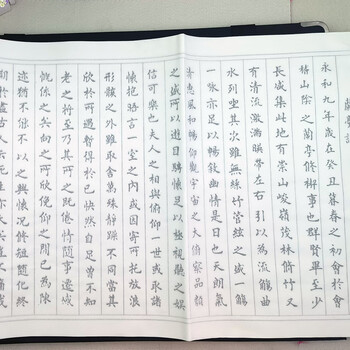 蘭亭記
永和九年歲在癸丑暮春之初會於會
稽山陰之蘭亭修禊事也群賢畢至少
長咸集此地有崇山峻嶺茂林脩竹又
有清流激湍暎帶左右引以為流觴曲
水列坐其次雖無絲竹管絃之盛一觴
一詠亦足以暢敘幽情是日也天朗氣
清惠風和暢仰觀宇宙之大俯察品類
之盛所以遊目騁懷足以極視聽之娛
信可樂也夫人之相與俯仰一世或取諸
懷抱晤言一室之內或因寄所託放浪
形骸之外雖取舍萬殊靜躁不同當其
欣於所遇暫得於己快然自足曾不知
老之將至及其所之既倦情隨事遷感
慨係之矣向之所欣俛仰之間已為陳
迹猶不能不以之興懷況脩短隨化終
期於盡古人云死生亦大矣豈不痛哉